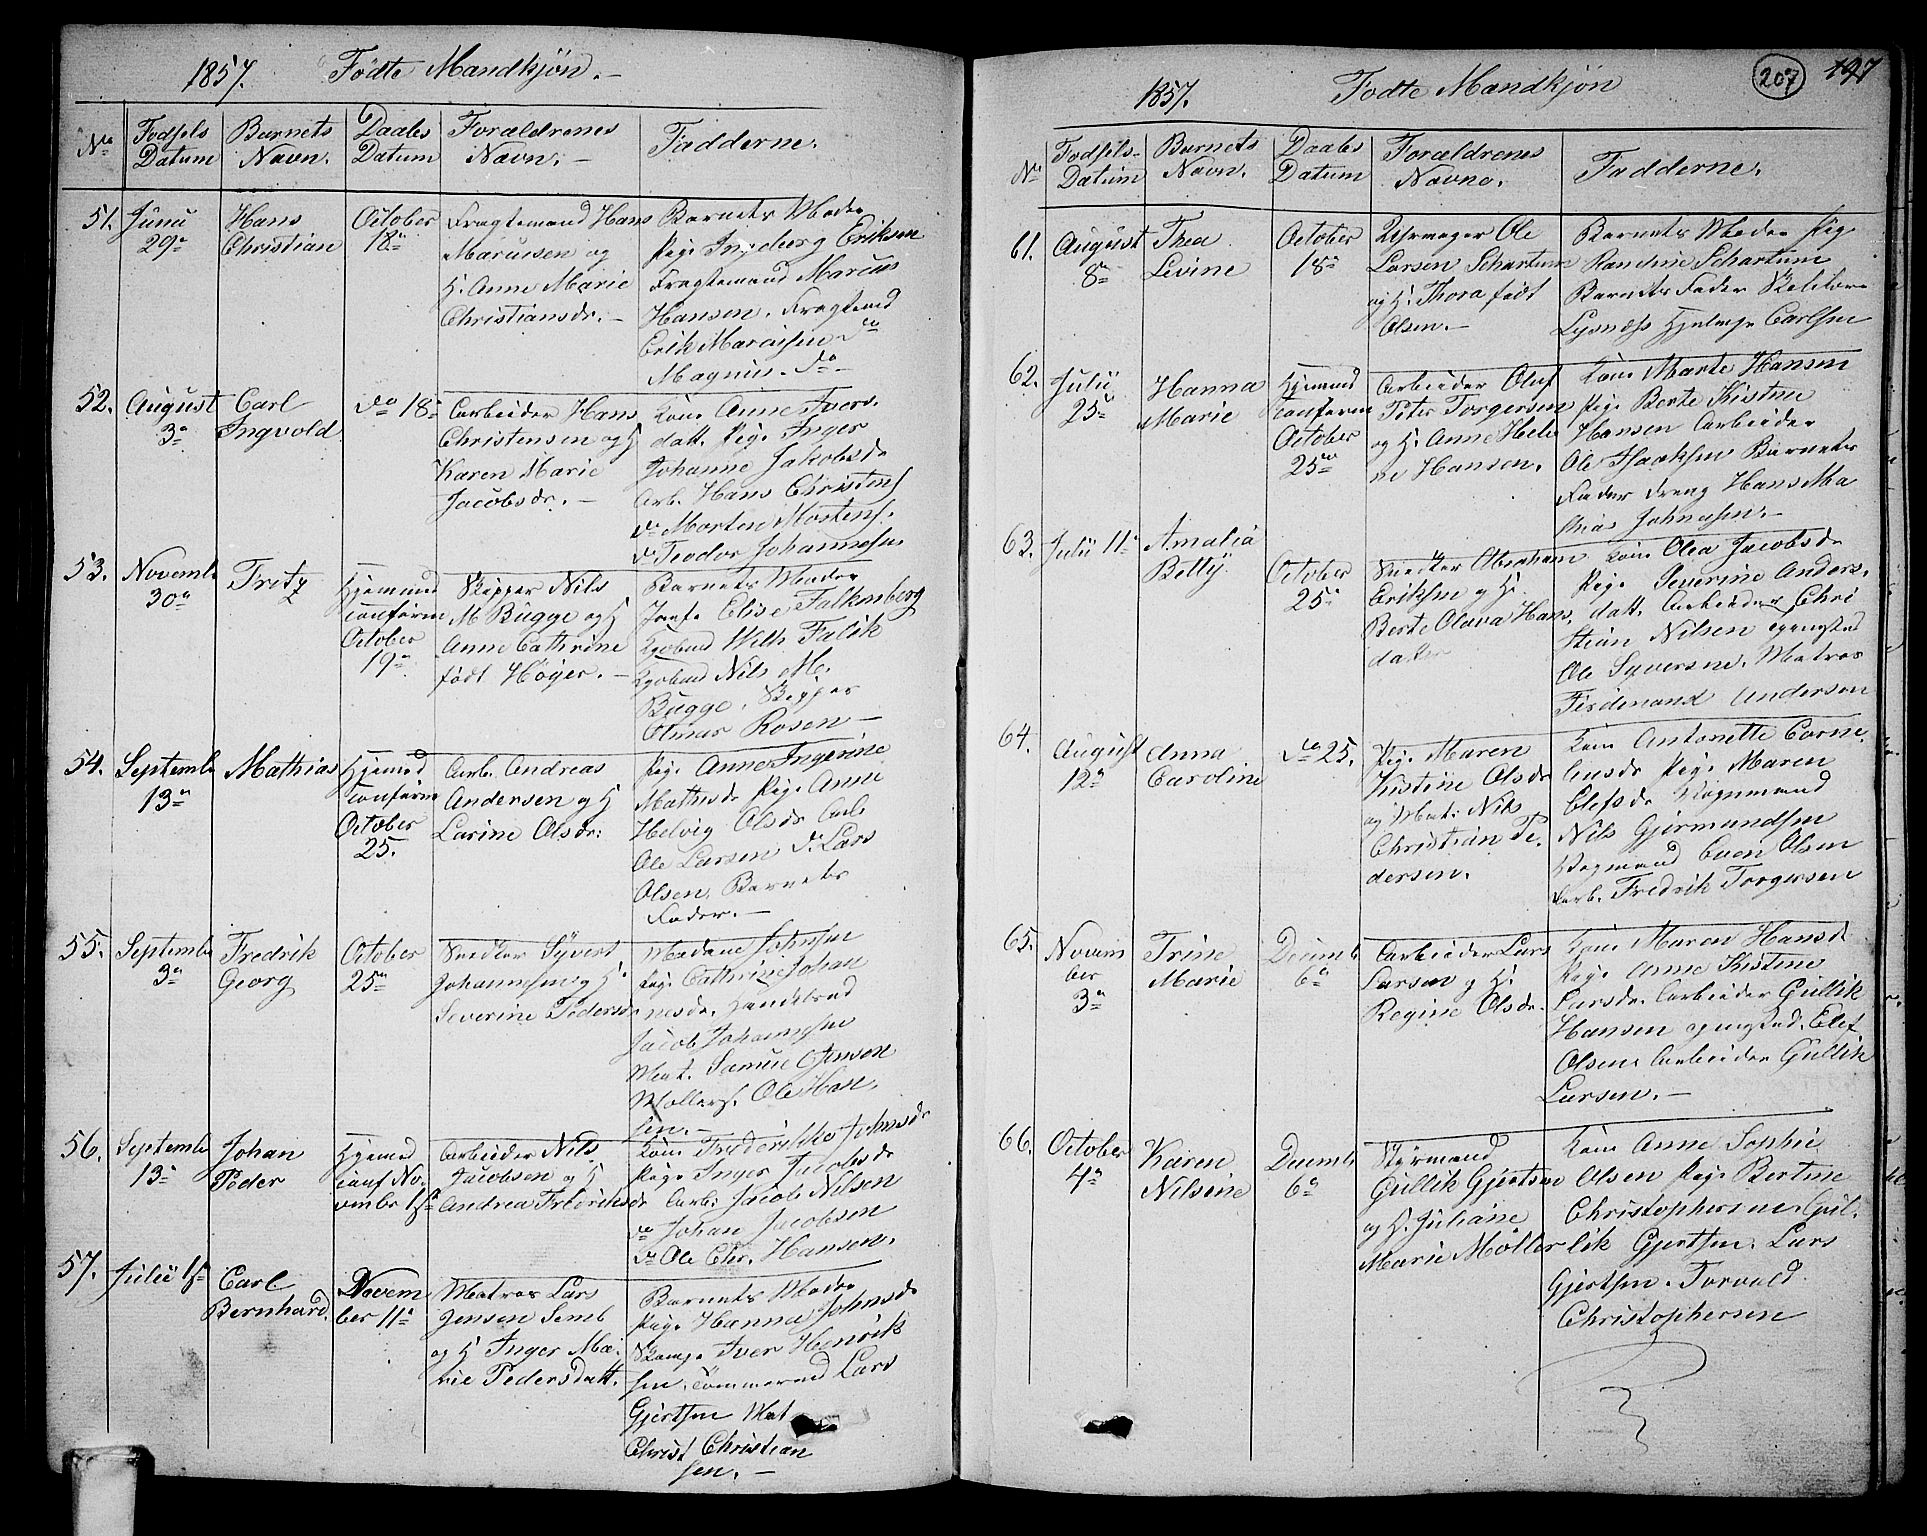 1857. Födte Mandkjön. –
No Fodsels Datum Barnets Navn. Daabs Datum Forældrenes Navn. – Fadderne.
51. Junii 29de Hans Christian October 18de
Fragtemand Hans
Marcussen og
H. Anne Marie
Christiansdr. –
Barnets Moder
Pige Ingeborg Eriksen
Fragtemand Marcus
Hansen, Fragtemd
Erik Marcussen do
Magnus do –
52. August 3de Carl Ingvold do 18de
Arbeider Hans
Christensen og H
Karen Marie
Jacobsdr. –
Kone Anne Ivers
datt. Pige Inger
Johanne Jakobsdr
Arb. Hans Christens
do Morten Mortens.
do Teodor Johannesen
53. Novemb 30de Fritz Hjemmed Conferm October 19de
Skipper Nils
M Bugge og H
Anne Cathrine
födt Höyer. –
Barnets Moder
Jomf. Elise Falkenberg
Kjøbmd Wilh Falck
Kjøbmd Nils M.
Bugge, Skipper
Olmar Rosen –
54. Septemb 13de Mathias Hjemmed Conferm October 25.
Arb. Andreas
Andersen og H
Larine Olsdr:
Pige Anne Ingerine
Mathisdr Pige Anne
Helvig Olsdr Arb.
Ole Larsen do Lars
Olsen, Barnets
Fader. –
55. Septemb 3de Fredrik Georg October 25de
Snedker Syvert
Johannesen og H.
Severine Pedersdr
Madame Johnsen
Pige Cathrine Johan
nesdr. Handelsmd
Jacob Johannesen
Mat. Samuel Jenson
Möllers. Ole Han
sen. –
56. Septemb 13de Johan Peder Hjemmed Conf November 1ste
Arbeider Nils
Jacobsen og H
Andrea Fredriksdr
Kone Frederikke Johnsdr
Pige Inger Jacobsdr
Arb. Jacob Nilsen
do Johan Jacobsen
do Ole Chr. Hansen.
57. Julii 1ste Carl Bernhard. November 11de
Matros Lars
Jensen Semb
og H Inger Ma
rie Pedersdatt.
Barnets Moder
Pige Hanna Johnsdr
Iver Henrik
sen, Tömmermd Lars
Gjertsen Mat
Christ Christian
sen. –
207 197
1857. Födte Mandkjön
No Fodsels- Datum Barnets Navn. Daabs Datum Forældrenes Navne. Fadderne.
61. August 8de Thea Levine October 18de
Uhrmager Ole
Larsen Schartum
og H. Thora födt
Olsen. –
Barnets Moder Pige
Ramsine Schartum
Barnets Fader
Lysness Carlsen
62. Julii 25de Hanna Marie Hjemmed Conferm October 25de
Arbeider Oluf
Peter Torgersen
og H. Anne Hele
ne Hansen.
Kone Marte Hansen
Pige Berte Kistine
Hansen Arbeider
Ole Isaksen Barnets
Fader Dreng Hans Ma
thias Johnsen. –
63. Julii 11de Amalia Betty October 25de
Snedker Abraham
Eriksen og H.
Berte Olava Hans
datter
Kone Olea Jacobsdr
Pige Severine Anders.
datt. Arbeider Chri
stian Nilsen
Ole Syversne. Matros
Ferdenand Andersen
64. August 12de Anna Caroline do 25.
Pige Maren
Kistine Olsdr
og Mat. Nils
Christian Pe.
dersen.
Kone Antonette Corne
liusdr Pige Maren
Elefsdr Vognmand
Nils Gjermundsen
Vognmand Even Olsen
Farb. Fredrik Torgersen
65. November 3de Trine Marie Decemb 6de
Arbeider Lars
Larsen og H.
Regine Olsdr.
Kone Maren Hansdr
Pige Anne Kistine
Larsdr. Arbeider Gullik
Hansen Elef
Olsen Arbeider Gullik
Larsen. –
66. October 4de Karen Nilsine Decemb 6de
Styrmand
Gullik Gjertsen
og H. Juliane
Marie Möller
Kone Anne Sophie
Olsen Pige Bertine
Christophersen, Gul.
lik Gjertsen. Lars
Gjertsen. Torvald
Christophersen